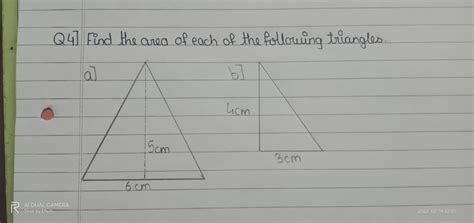 Q4] Find the area of each of the following triangles.
a]
b]
4cm
5cm
3cm
6cm
AI DUAL CAMERA